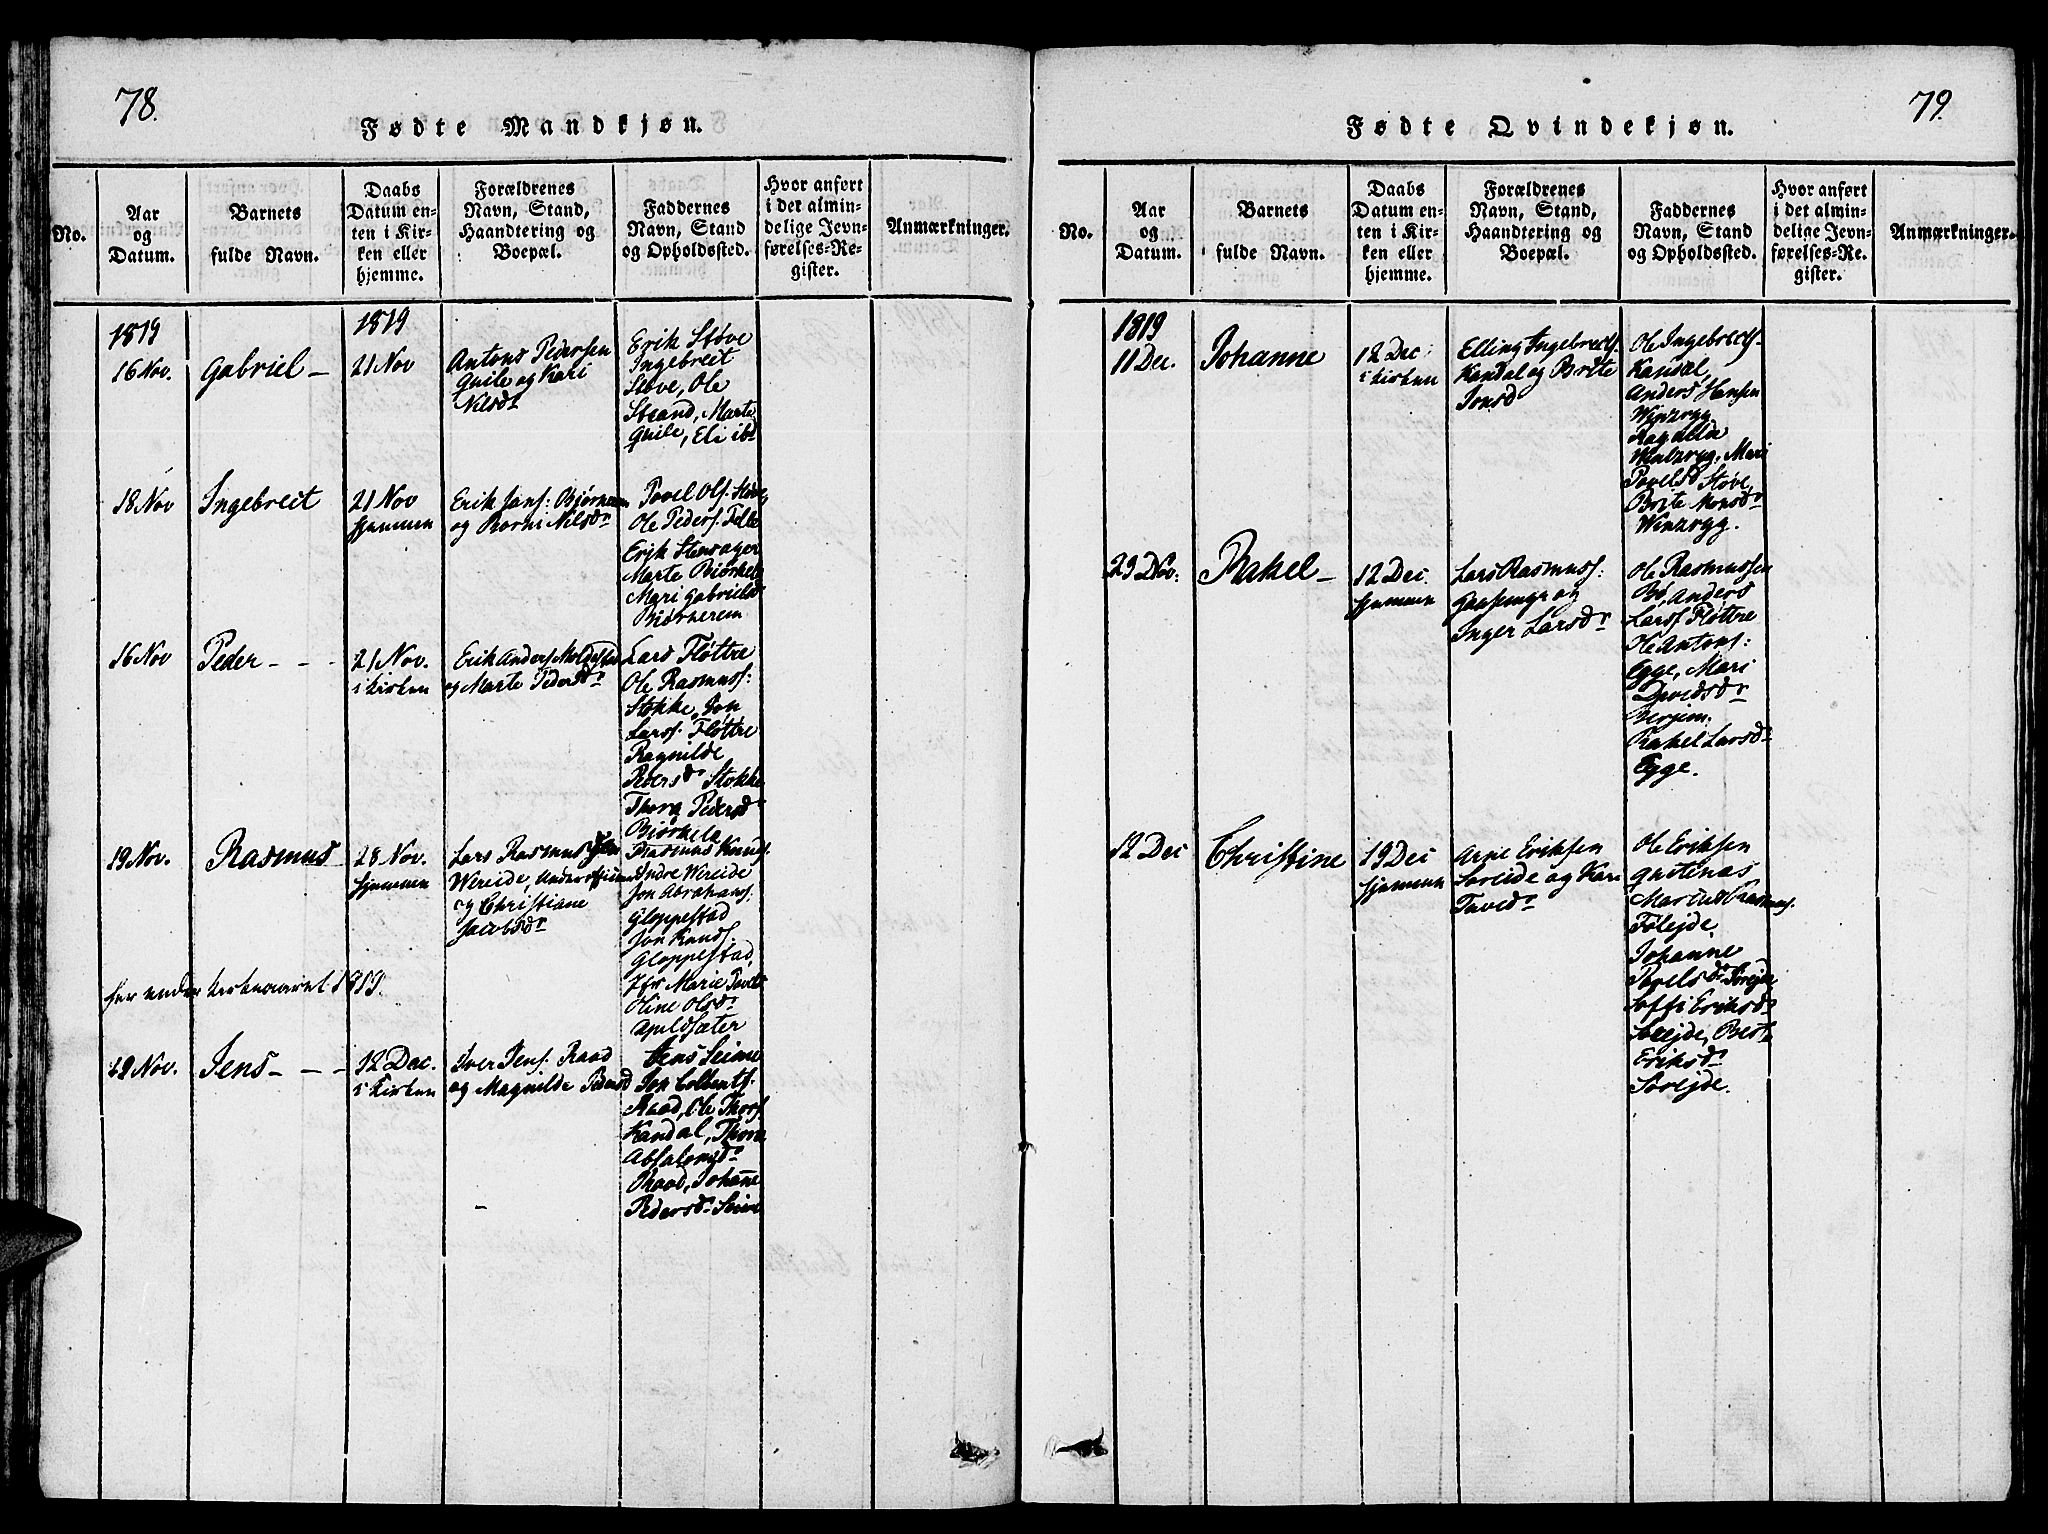 78.
Fødte Mandkjøn.
No.
Aar
og
Datum.
Barnets
fulde Navn.
Daabs
Datum en-
ten i Kir-
ken eller
hjemme.
Forældrenes
Navn, Stand,
Haandtering og
Boepæl.
Faddernes
Navn, Stand
og Opholdssted.
Hvor anført
i det almin-
delige Jevn-
førelses-Re-
gister.
Anmærkninger.
1819
16 Nov.
Gabriel
1819
21 Nov
Antons Pedersen
Guile og Kari
Nilsdr
Erik Støve
Ingebreit
Støve, Ole
Strand, Marte
Guile, Eli ibd
18 Nov
Ingebreit
21 Nov
hjemmen
Erik Jans: Bjørnerem
og Nilsdr
Povel Ols. Støve
Ole Peders. Felle
Erik Stensager
Marte Biørkelo
Mari Gabrielsdr
Biørnerem
16 Nov
Peder - - -
21 Nov.
i kirken
Erik Anders. Moldestad
og Marte Pedersdr
Lars Fløttre
Ole Rasmuss:
Stokke, Jon
Larss. Fløttre
Ragnilde
Pedersdr Stokke
Thora Pedersdr
Biørkelo
19 Nov.
Rasmus
28 Nov.
hjemmen
Lars Rasmussen
Wereide,
og Christiane
Jacobsdr
Rasmus Knuds.
Indre Wereide
Jon Abrahams:
Gloppestad
Jon Knuds.
Gloppestad,
Jfr Marie
Oline Olsdr
Apuldsæter
her ender kirkeaaret 1819.
29 Nov.
Jens - - -
12 Dec.
i kirken
Iver Jens. Raad
og Magnilde Pedersd
Jens Seime
Jon Colbents.
Raad, Ole Thors.
Kandal, Thora
Absalonsdr
Raad, Johanne
Pedersdr Seime
79.
Fødte Qvindekjøn.
No.
Aar
og
Datum.
Barnets
fulde Navn.
Daabs
Datum en-
ten i Kir-
ken eller
hjemme.
Forældrenes
Navn, Stand,
Haandtering og
Boepæl.
Faddernes
Navn, Stand
og Opholdssted.
Hvor anført
i det almin-
delige Jevn-
førelses-Re-
gister.
Anmærkninger.
1819
11 Dec.
Johanne
12 Dec:
i kirken
Elling Ingebredts.
Kandal og Brite
Jonsd
Ole Ingebredts.
Kandal,
Anders Hansen
Winzryg
Ragnilda
Wintzryg, Mari
Povelsd Støve,
Brite Monsdr
Winzryg.
29 Nov:
Rakel -
12 Dec.
hjemmen
Lars Rasmuss:
og
Inger Larsdr
Ole Rasmussen
Bø, Anders
Larss Fløttre
Ole Antons:
Egge, Mari
Davidsdr
Berjem:
Rakel Larsdr
Egge.
12 Dec
Christine
19 Dec
hjemmen
Arne Eriksen
Soreide og Kari
Ole Eriksen
Marcus Rasmus.
Johanne
Povelsdr Sorejde
Soffi Eriksdr
Sorejde, Berte
Eriksdr
Sorejde.